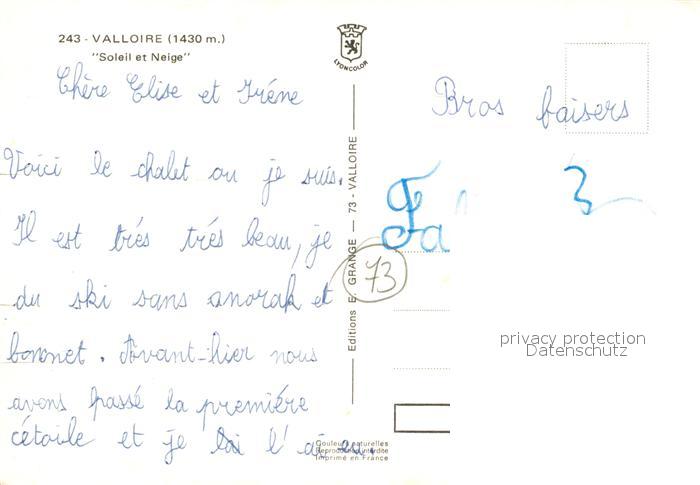 243 - VALLOIRE (1430 m.)
"Soleil et Neige"
Chère Elise et Iréne
Voici le chalet ou je suis.
Il est trés trés beau, je
du ski sans anorak et
bononet. Avant-hier nous
avons passé la premiére
cétoile et je l'ai eu.
Bros baisers
Fa
LYONCOLOR
Editions E. GRANGE — 73 - VALLOIRE
73
Couleurs naturelles
Reproduction interdite
Imprimé en France
privacy protection
Datenschutz